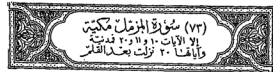 (٧٣) سُورَةُ المُزَّمِّل مَكيَّة
إلا الآيات ١٠ و ١١ و ٢٠ فمدنيّة
وآياتها ٢٠ نزلت بعد القلم